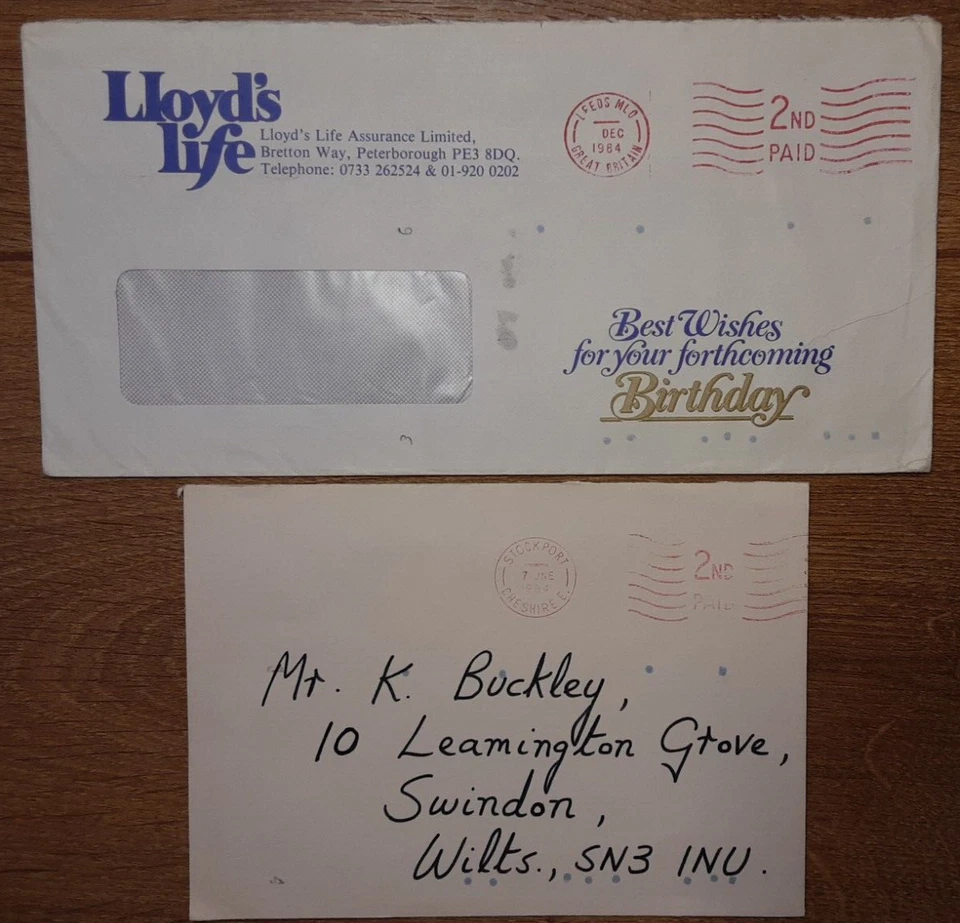 Lloyd's
life
Lloyd's Life Assurance Limited,
Bretton Way, Peterborough PE3 8DQ.
Telephone: 0733 262524 & 01-920 0202
LEEDS MLO
DEC
1984
GREAT BRITAIN
2ND
PAID
6
3
Best Wishes
for your forthcoming
Birthday
STOCKPORT
7 JNE
CHESHIRE E.
2ND
PAID
Mr. K. Buckley,
10 Leamington Grove,
Swindon,
Wilts., SN3 1NU.